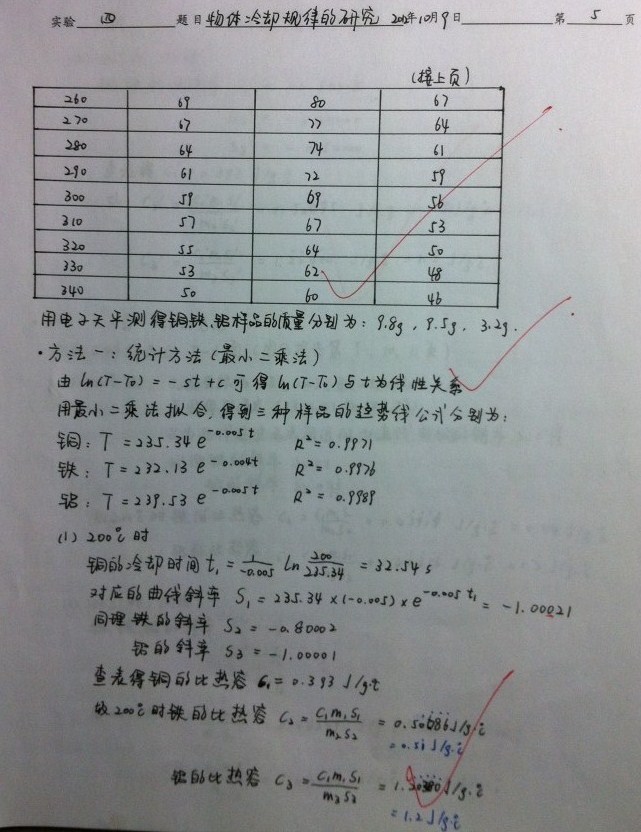 实验 四 题目 物体冷却规律的研究 2012年10月9日 第 5 页
(接上页)
260 69 80 67
270 67 77 64
280 64 74 61
290 61 72 59
300 59 69 56
310 57 67 53
320 55 64 50
330 53 62 48
340 50 60 46
用电子天平测得铜铁、铝样品的质量分别为: 9.8g, 9.5g, 3.2g.
·方法一: 统计方法(最小二乘法)
由 ln(T-T0) = -st+c 可得 ln(T-T0) 与t为线性关系
用最小二乘法拟合, 得到三种样品的趋势线公式分别为:
铜: T = 235.34 e^-0.005t R² = 0.9971
铁: T = 232.13 e^-0.004t R² = 0.9976
铝: T = 239.53 e^-0.005t R² = 0.9989
(1) 200℃时
铜的冷却时间 t₁ = 1/-0.005 ln 200/235.34 = 32.54 s
对应的曲线斜率 S₁ = 235.34×(-0.005)×e^-0.005t₁ = -1.00021
同理 铁的斜率 S₂ = -0.80002
铝的斜率 S₃ = -1.00001
查表得铜的比热容 C₁ = 0.393 J/g·℃
故200℃时铁的比热容 C₂ = C₁m₁S₁/m₂S₂ = 0.50686 J/g·℃
= 0.51 J/g·℃
铝的比热容 C₃ = C₁m₁S₁/m₃S₃ = J/g·℃
= 1.2 J/g·℃